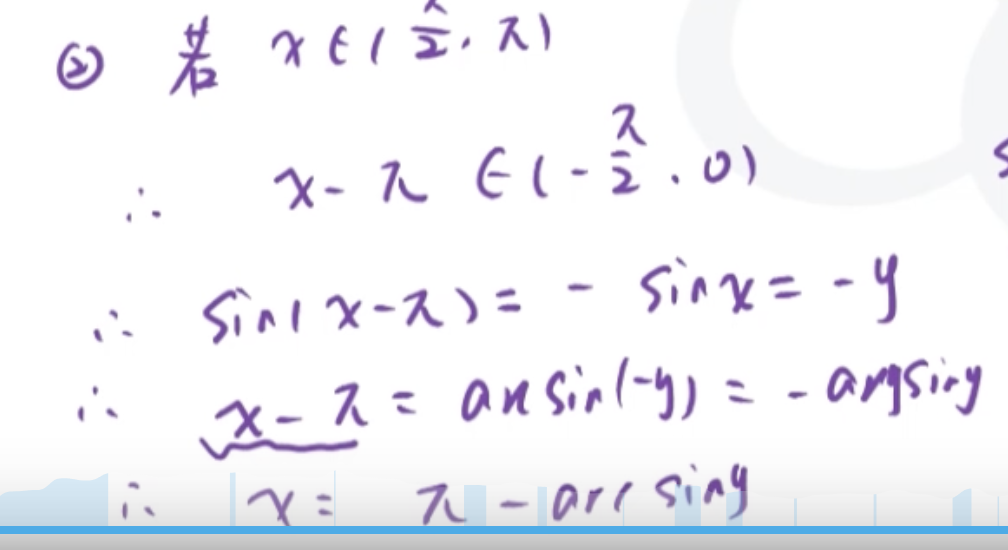 ② 若 x∈(π/2, π)
∴ x-π ∈(-π/2, 0)
∴ sin(x-π)= - sinx = -y
∴ x-π = arcsin(-y) = - arcsiny
∴ x = π - arcsiny